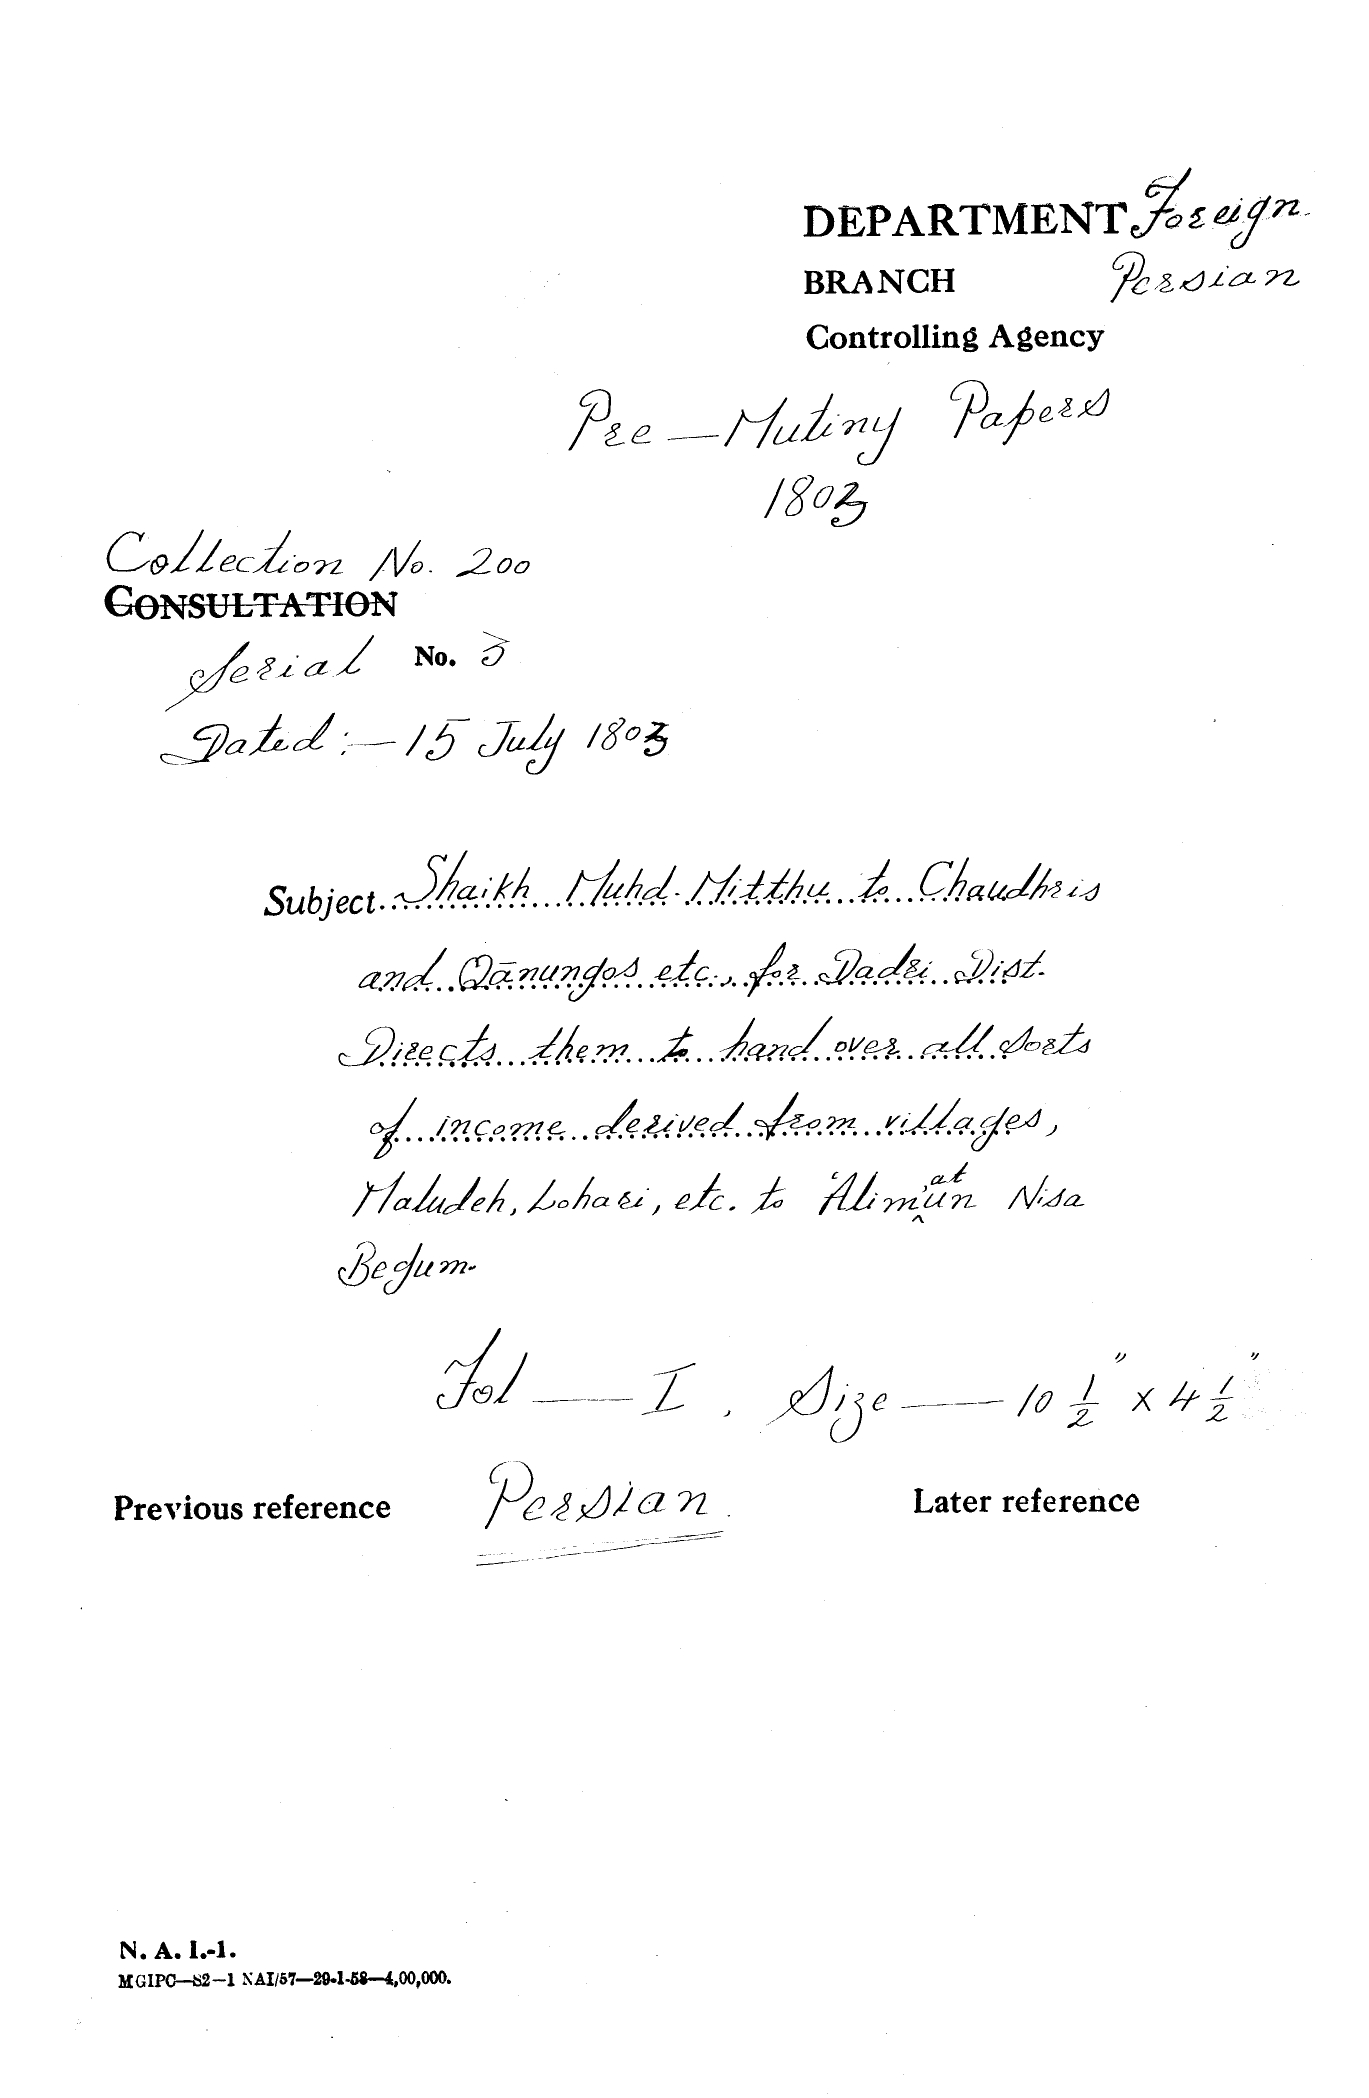 DEPARTMENT Foreign
BRANCH Persian
Controlling Agency
Pre — Mutiny Papers
1803
Collection No. 200
CONSULTATION
Serial No. 3
Dated :— 15 July 1803
Subject Shaikh Muhd. Mitthu to Chaudhris
and Qānungos etc., for Dadri Dist.
Directs them to hand over all sorts
of income derived from villages,
Maludeh, Lohari, etc. to 'Alimatun Nisa
Begum.
Fol — I, Size — 10 1/2" x 4 1/2"
Previous reference Persian Later reference
N. A. I.-1.
MGIPC—S2—1 NAI/57—29-1-58—4,00,000.